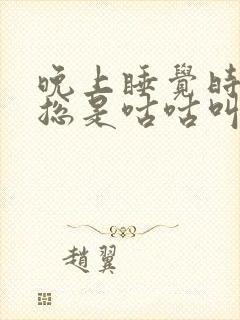 晚上睡覺時
總是咕咕叫
趙翼